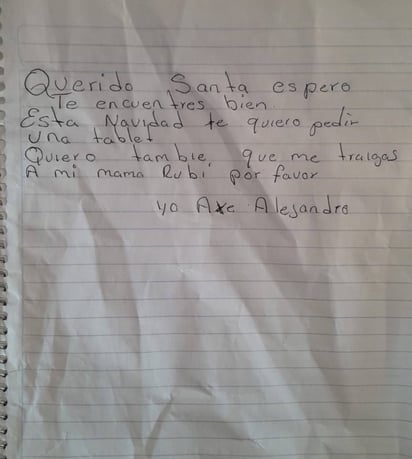 Querido Santa espero
Te encuentres bien.
Esta Navidad te quiero pedir
una tablet
Quiero tambie, que me traigas
A mi mama Rubi por favor
yo Axe Alesandro